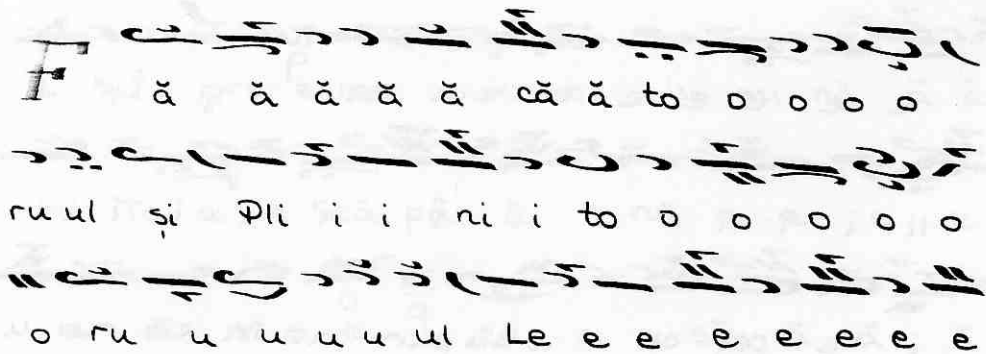 F ă ă ă ă ă că ă to o o o o
ru ul și Pli i i ni i to o o o o o
o ru u u u u ul Le e e e e e e e